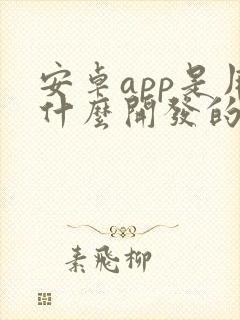 安卓app是用
什麼開發的
素飛柳